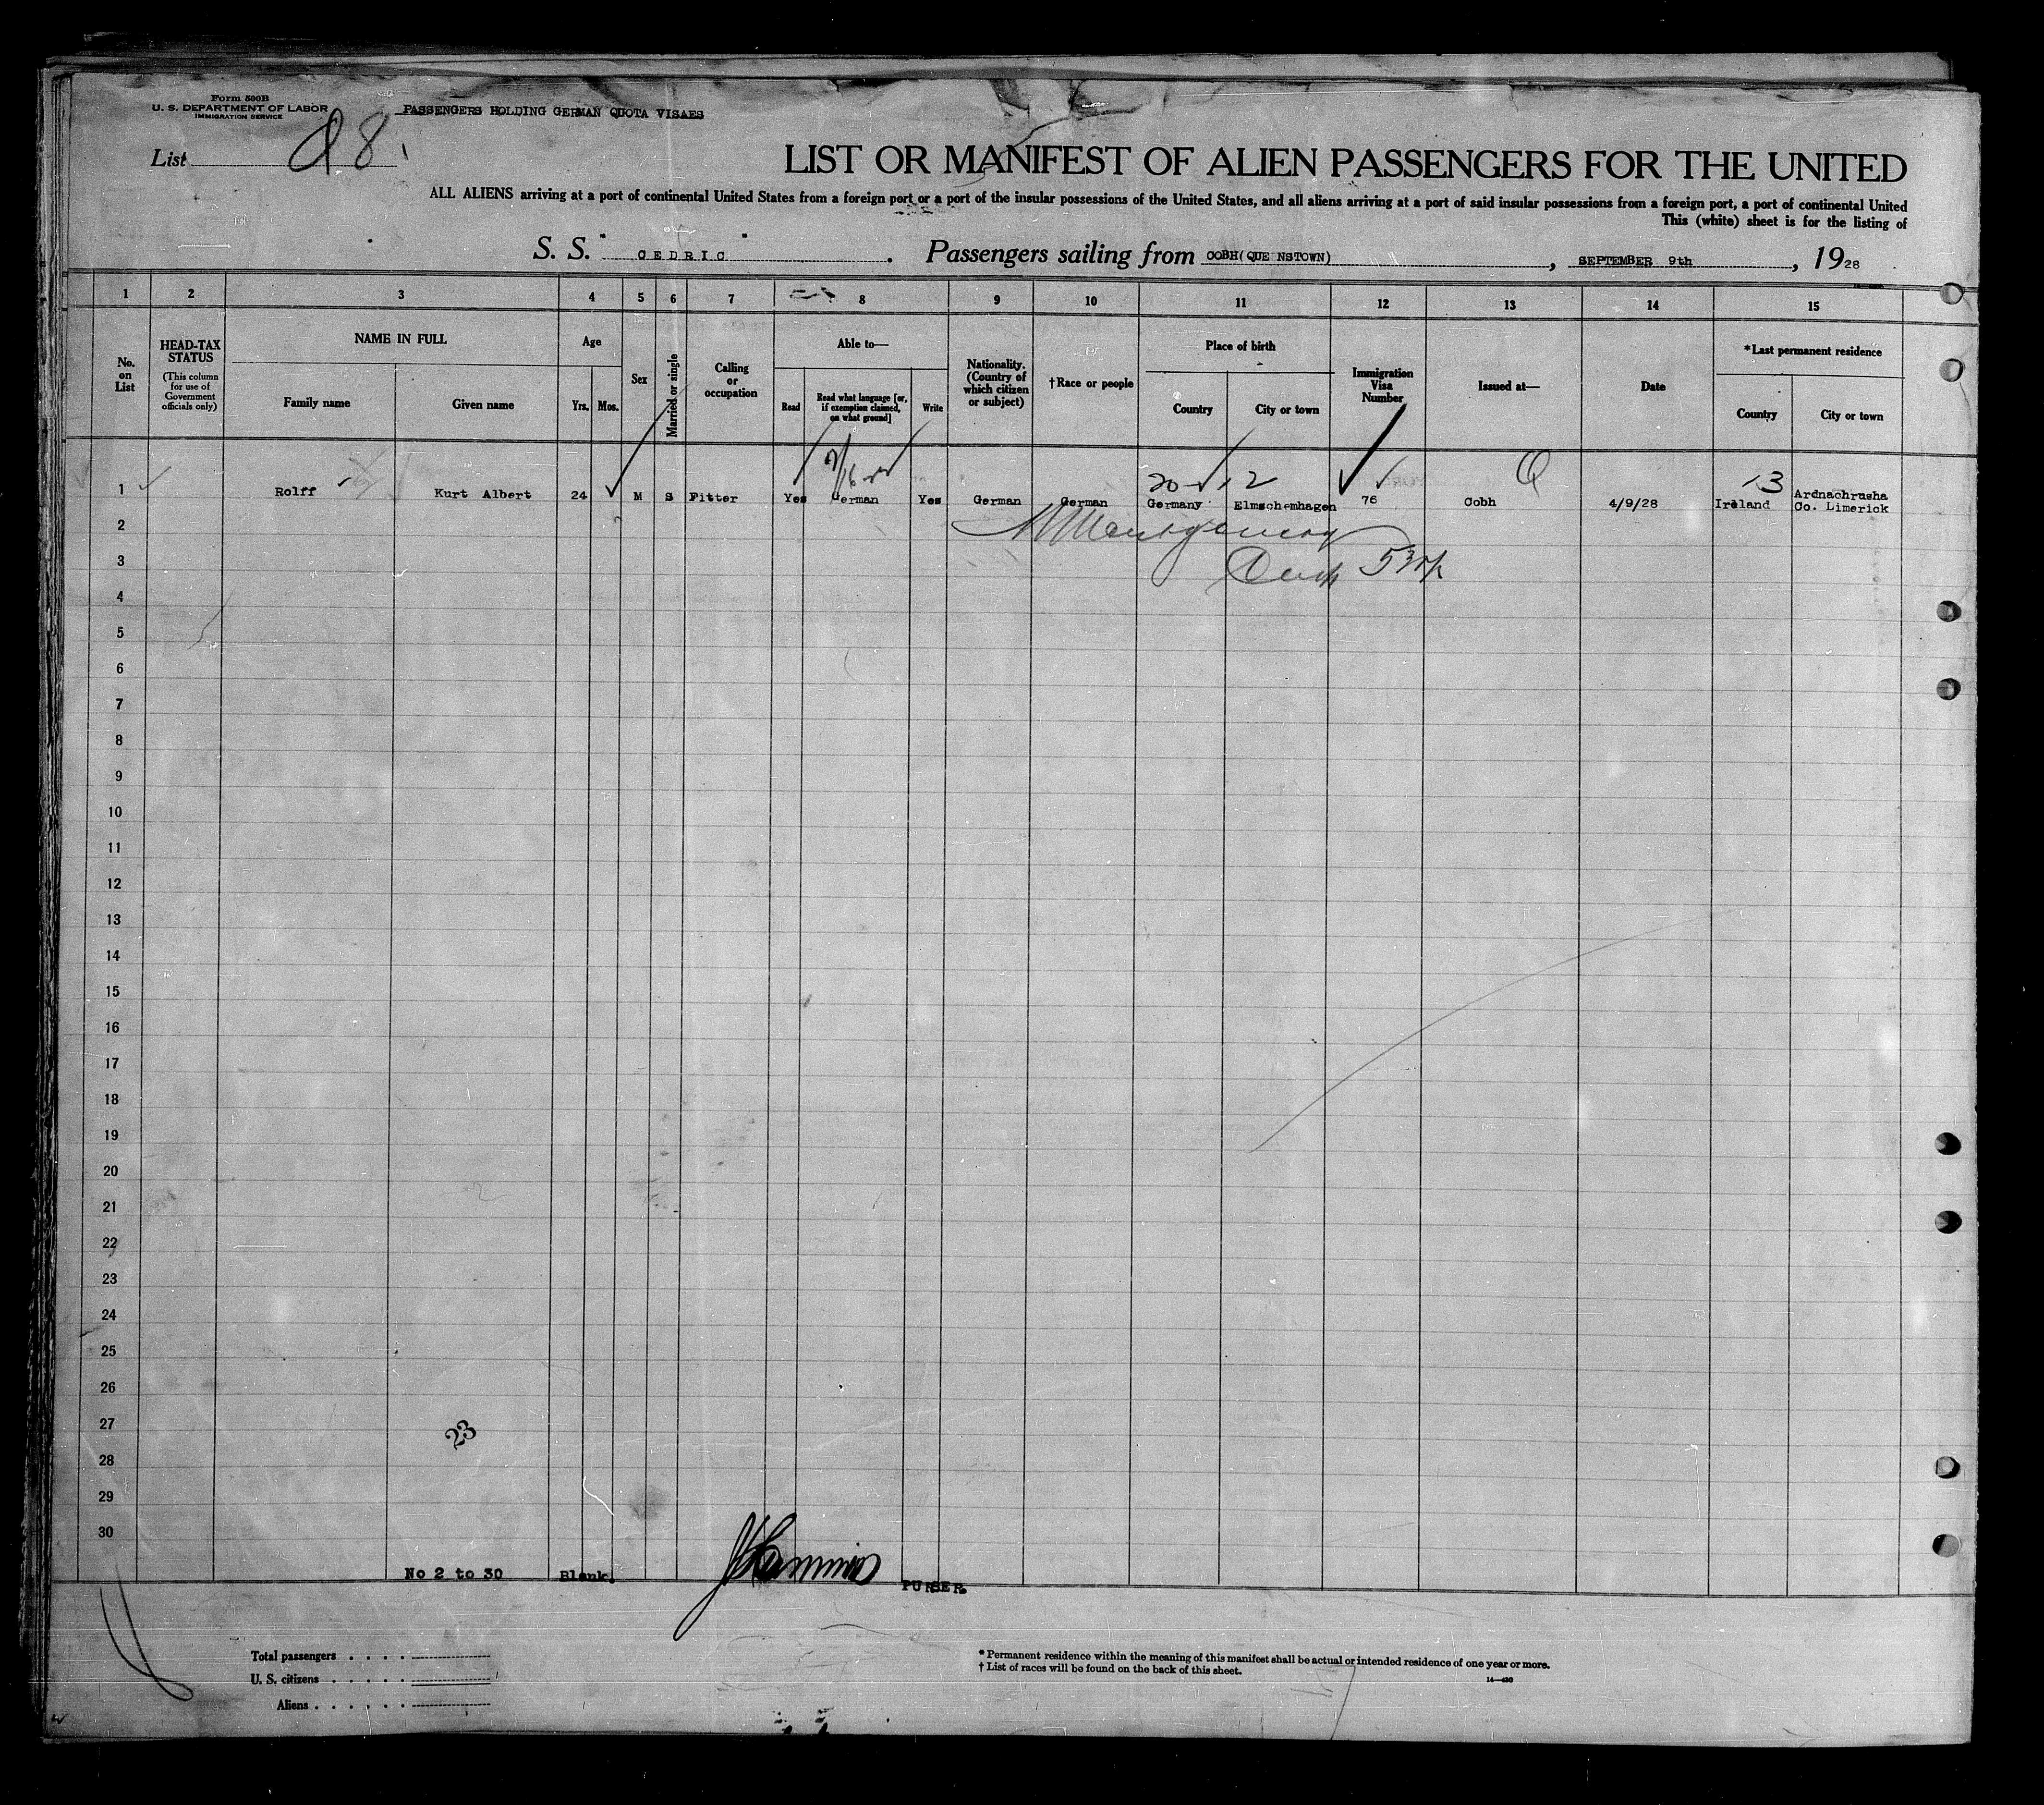 Form 500B
U. S. DEPARTMENT OF LABOR
IMMIGRATION SERVICE
PASSENGERS HOLDING GERMAN QUOTA VISAES
List 98.
LIST OR MANIFEST OF ALIEN PASSENGERS FOR THE UNITED
ALL ALIENS arriving at a port of continental United States from a foreign port or a port of the insular possessions of the United States, and all aliens arriving at a port of said insular possessions from a foreign port, a port of continental United
This (white) sheet is for the listing of
S. S. " CEDRIC " . Passengers sailing from COBH(QUE NSTOWN) , SEPTEMBER 9th , 1928
1 2 3 4 5 6 7 8 9 10 11 12 13 14 15
No. on List
HEAD-TAX STATUS
(This column for use of Government officials only)
NAME IN FULL
Family name
Given name
Age
Yrs. Mos.
Sex
Married or single
Calling or occupation
Able to—
Read
Read what language [or, if exemption claimed, on what ground]
Write
Nationality. (Country of which citizen or subject)
†Race or people
Place of birth
Country
City or town
Immigration Visa Number
Issued at—
Date
*Last permanent residence
Country
City or town
20 12
Q
13
1 Rolff Kurt Albert 24 M S Fitter Yes German Yes German German Germany Elmschemhagen 76 Cobh 4/9/28 Ireland Ardnachrusha
Co. Limerick
2
Montgomery
3
4
5
6
7
8
9
10
11
12
13
14
15
16
17
18
19
20
21
22
23
24
25
26
27
23
28
29
30
No 2 to 30 Blank.
PURSER.
Total passengers
U. S. citizens
Aliens
* Permanent residence within the meaning of this manifest shall be actual or intended residence of one year or more.
† List of races will be found on the back of this sheet.
14—430